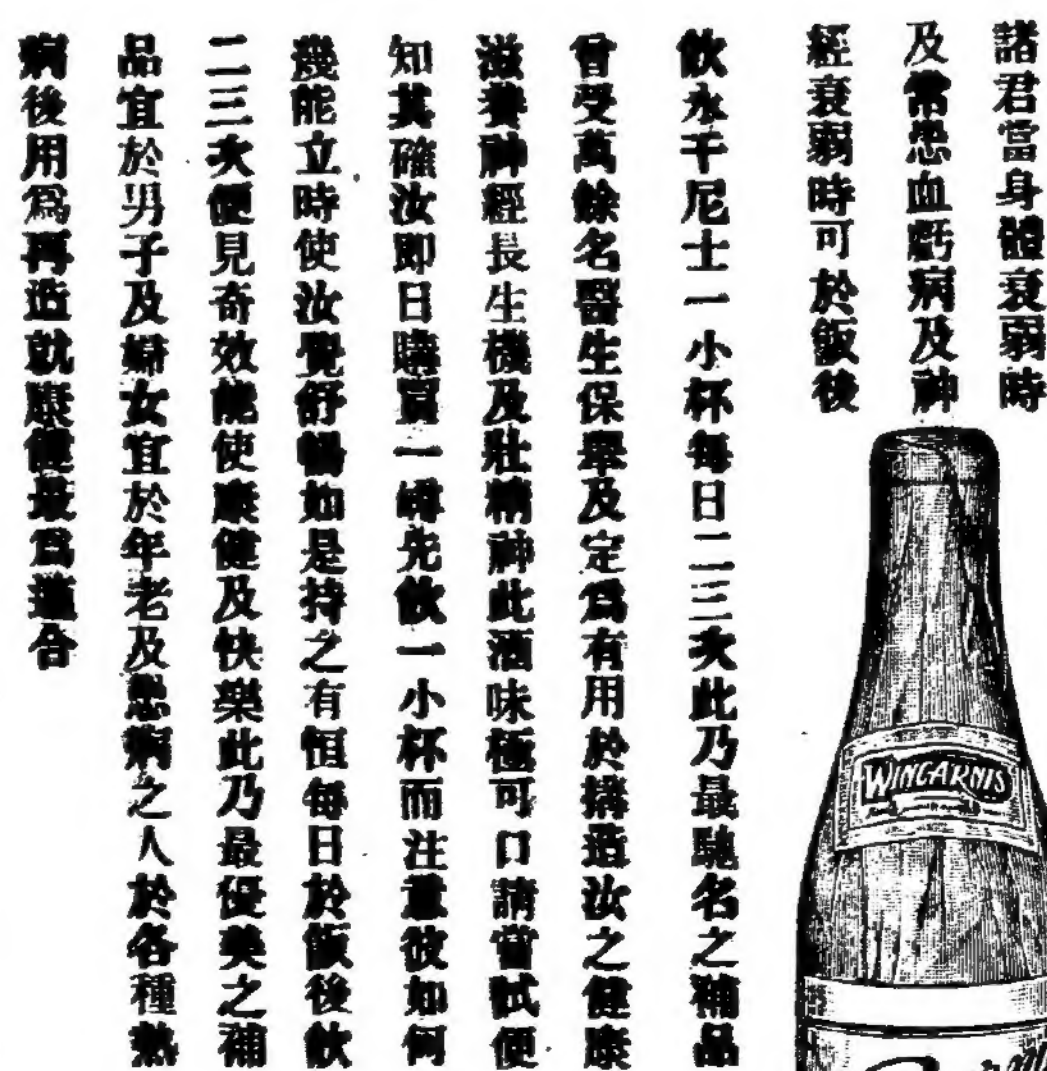 諸君當身體衰弱時
及常患血虧病及神
經衰弱時可於飯後
飲永干尼士一小杯每日二三次此乃最馳名之補品
曾受萬餘名醫生保舉及定爲有用於搆造汝之健康
滋養神經長生機及壯精神此酒味極可口請嘗試便
知其確汝即日購買一罇先飲一小杯而注意彼如何
幾能立時使汝覺舒暢如是持之有恒每日於飯後飲
二三次便見奇效能使康健及快樂此乃最優美之補
品宜於男子及婦女宜於年老及患病之人於各種熱
病後用爲再造就康健最爲適合
WINCARNIS